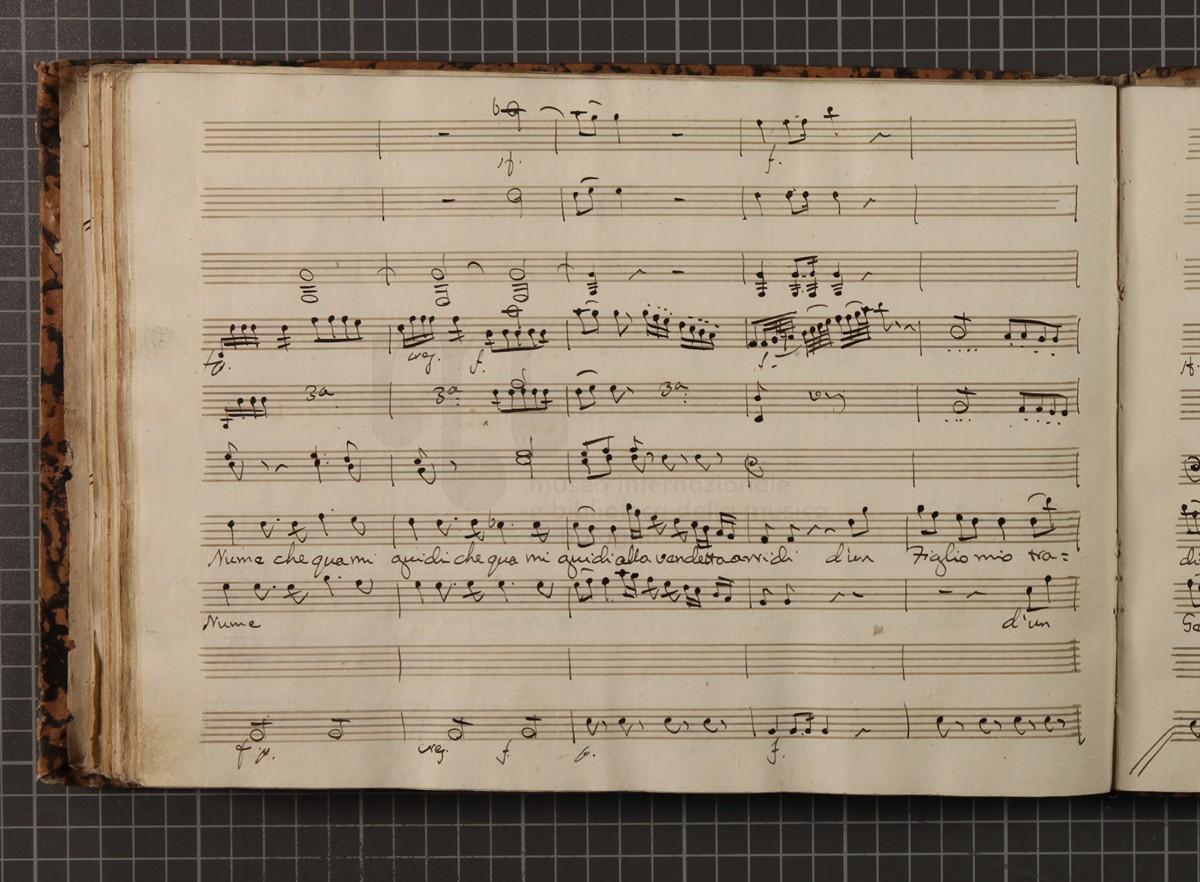 f.
3a
3a
3a
f.
museo internazionale
e biblioteca della musica
Nume che qua mi guidi che qua mi guidi alla vendetta arridi d'un Figlio mio tra=
Nume d'un
f p. creg. f. p. f.